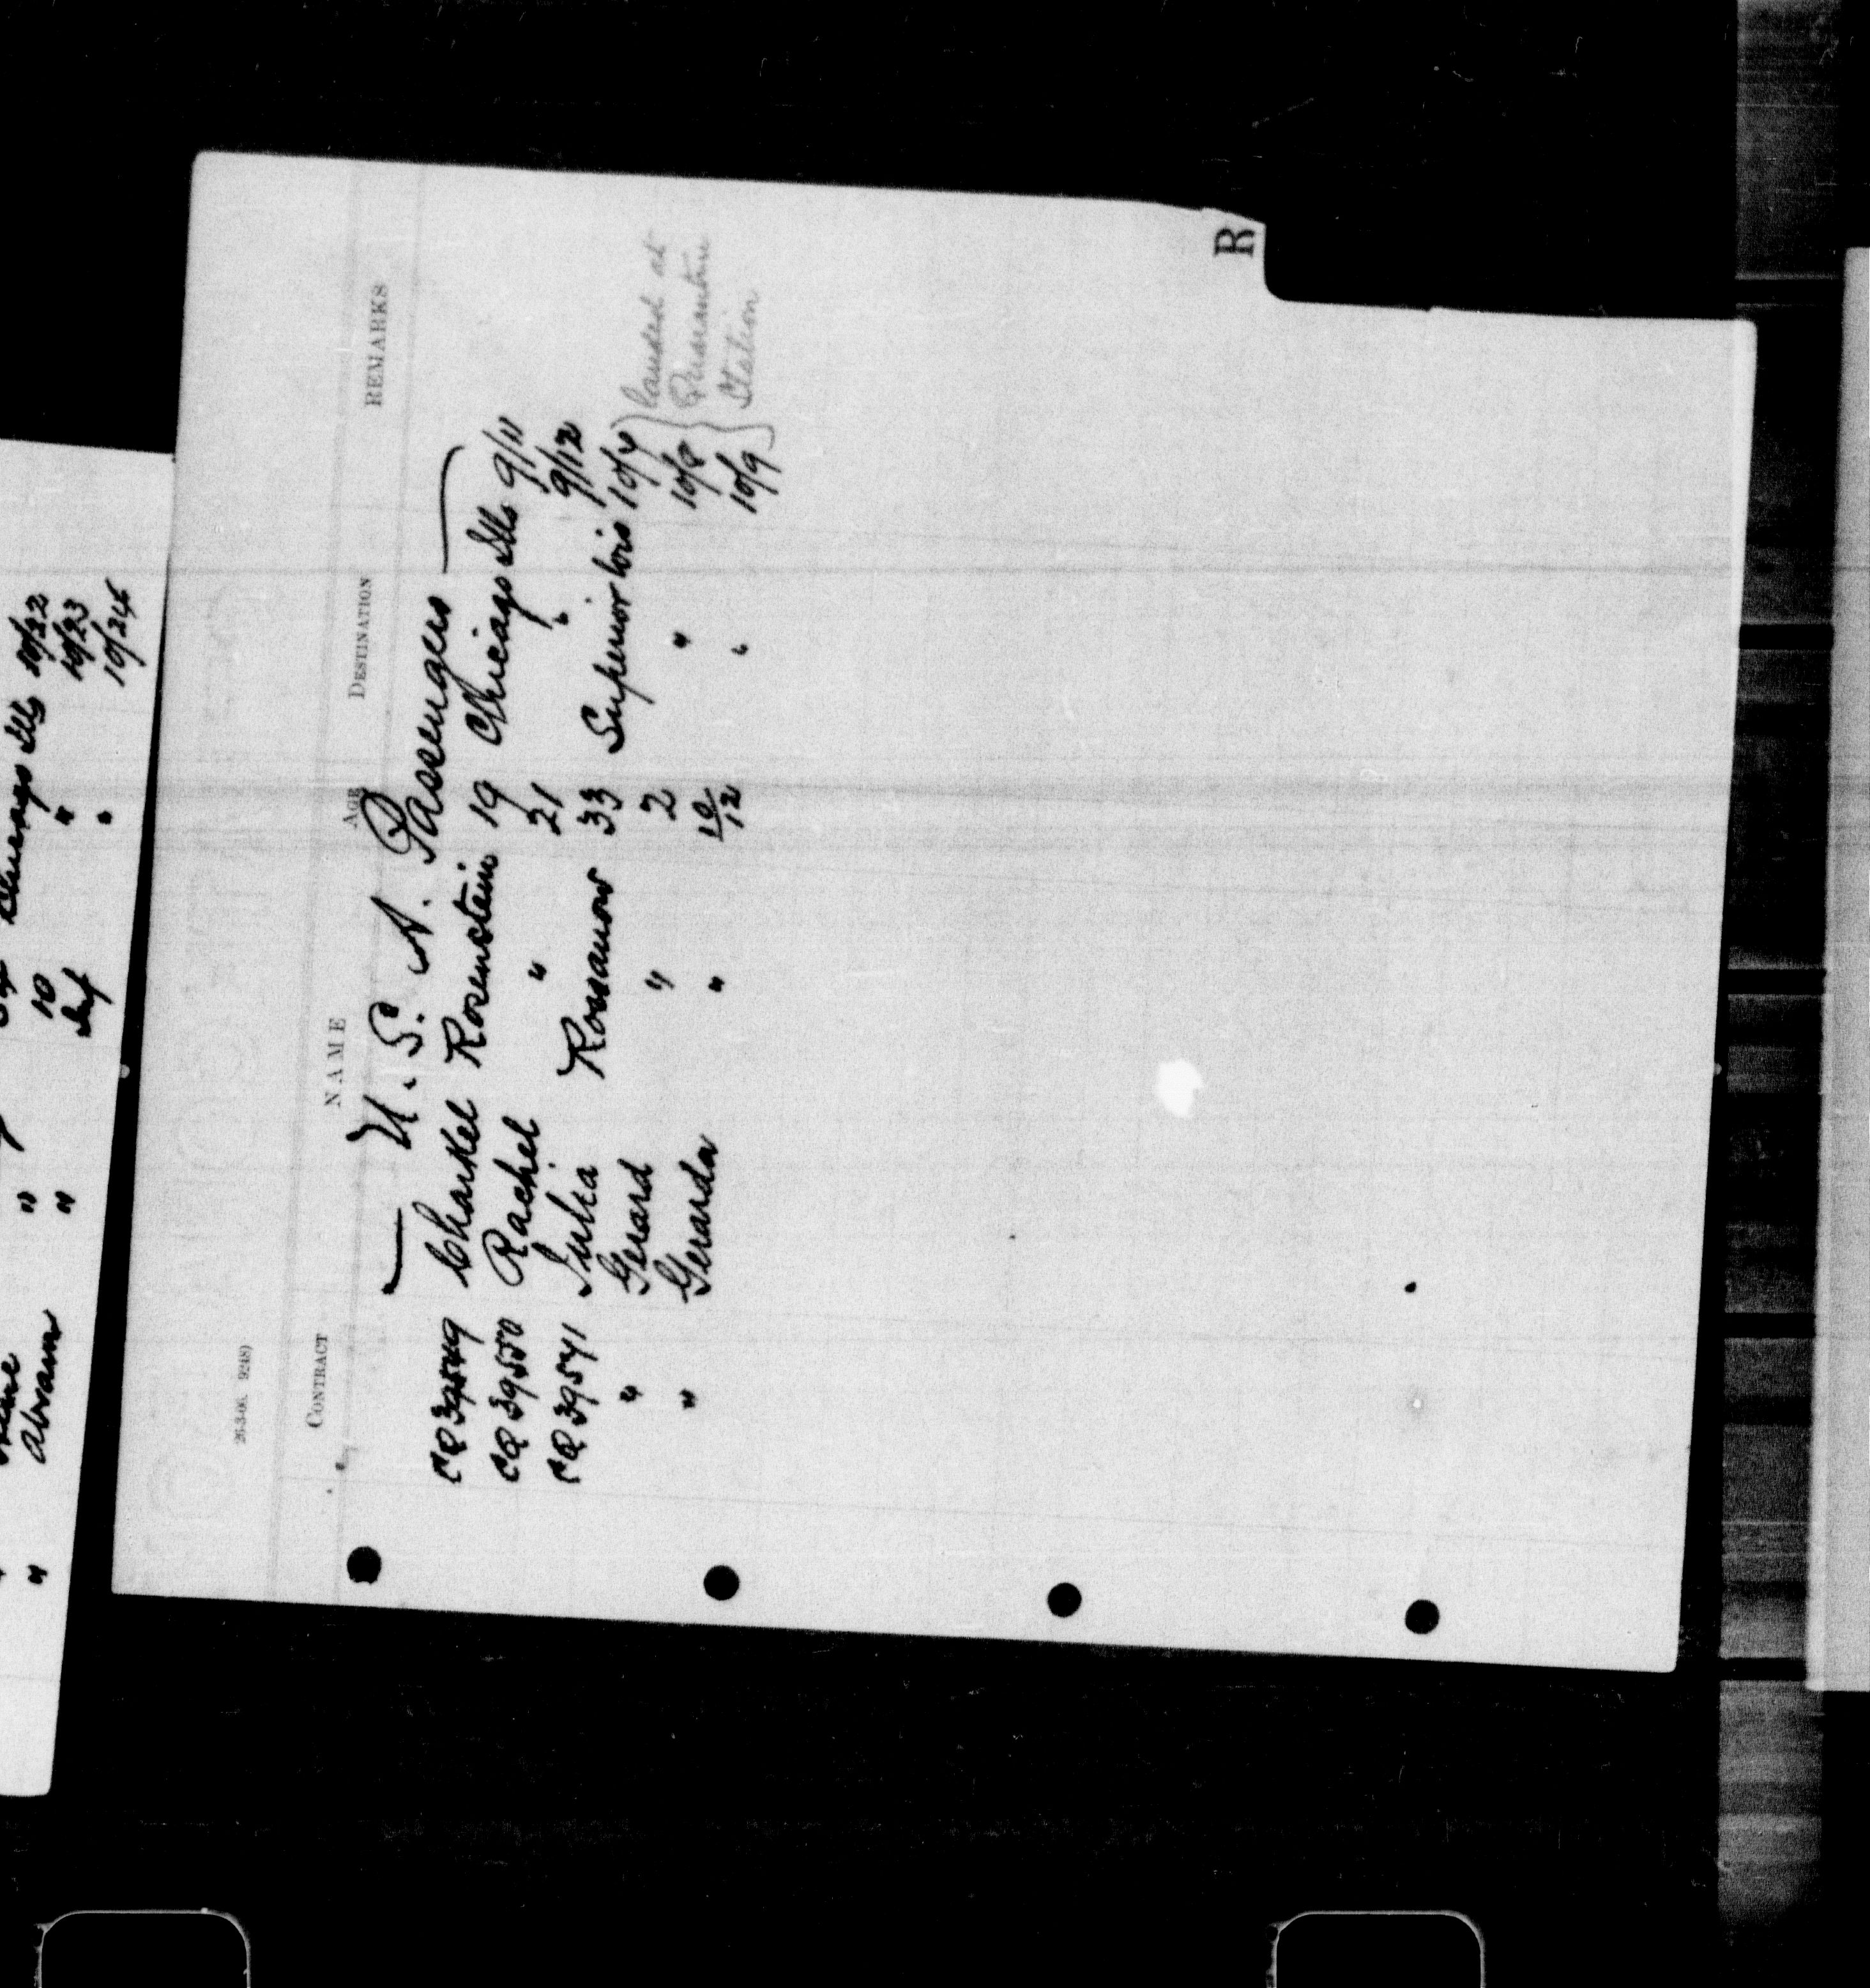 Chicago Ills 10/22
10 " 10/23
" Abram " Inf " 10/24
R
26-3-06. 9248)
CONTRACT NAME AGE DESTINATION REMARKS
— U. S. A. Passengers —
CQ 39549 Charkel Rosenstein 19 Chicago Ills 9/11
CQ 39550 Rachel " 21 " 9/12
CQ 39541 Julia Rossanow 33 Superior Wis 10/7 } landed at
" Gerard " 2 " 10/8 } Quarantine
" Gerarda " 10/12 " 10/9 } Station